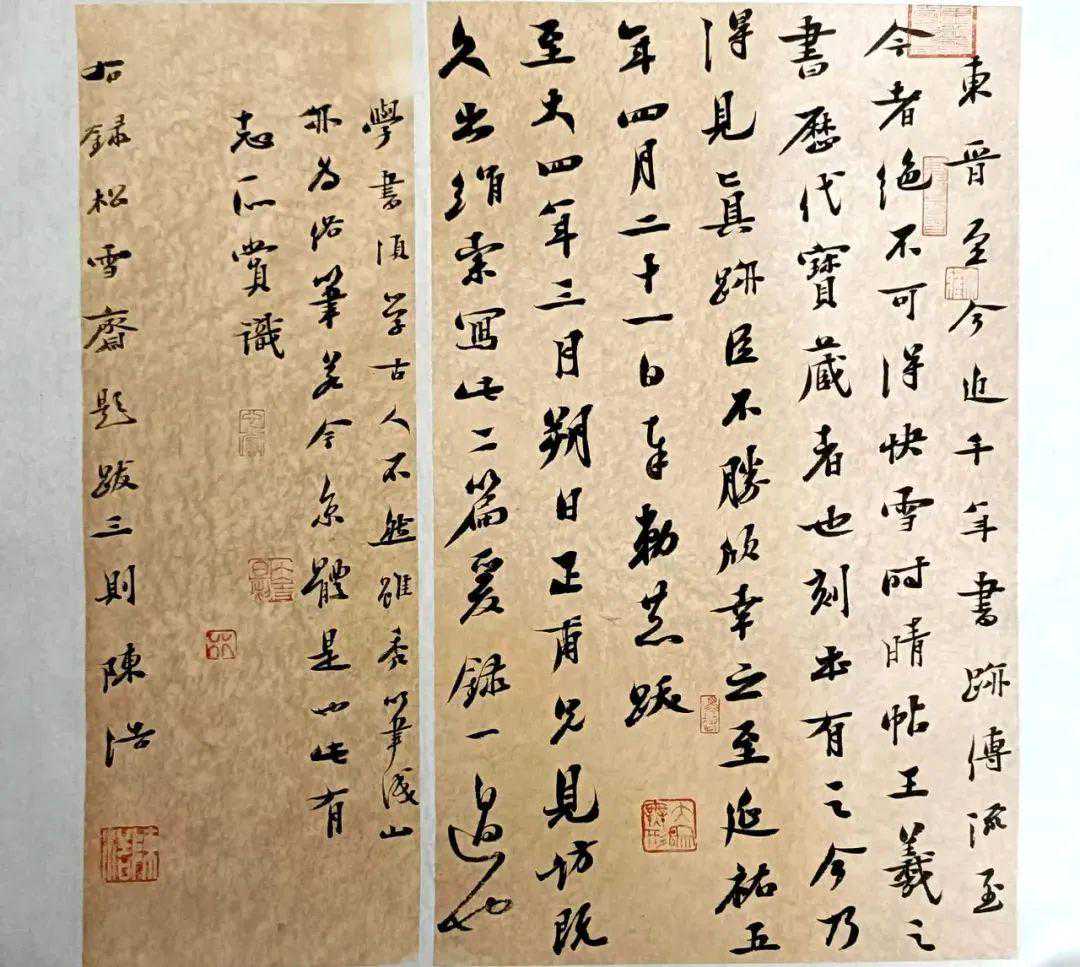 東晉至今近千年書跡傳流至
今者絶不可得快雪時晴帖王羲之
書歷代寶藏者也刻本有之今乃
得見眞跡臣不勝欣幸之至延祐五
年四月二十一日奉勅恭跋
至大四年三月朔日正甫兄見訪既
久出絹索寫此二篇爰錄一過也
學書須学古人不然雖秃筆成山
亦為俗筆若今京體是也此有
志所賞識
右録松雪齋題跋三則陳浩